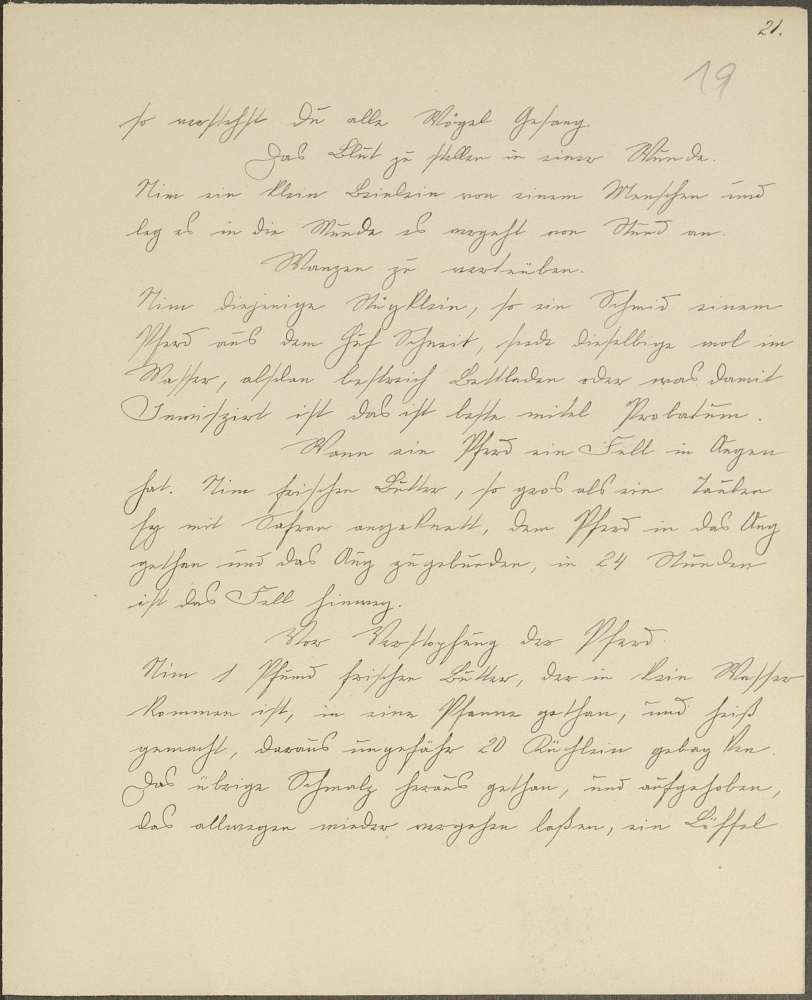 21.
19
so verstehst Du alle Vögel Gesang.
Das Blut zu stellen in einer Wunde.
Nim ein klein Beinlein von einem Menschen und
leg es in die Wunde es vergeht von Stund an.
Wanzen zu vertrüben.
Nim diejenige Stügklein, so ein Schmid einem
Pferd aus dem Huf Schneit, siede dieselbige wol im
Wasser, alsdan bestreich Bettladen oder was damit
Inwiszirt ist das ist beste mitel Probatum.
Wann ein Pferd ein Fell in Augen
hat. Nim frischen Butter, so gros als ein Tauben
Ey mit Safran angeknett, dem Pferd in das Aug
gethan und das Aug zugebunden, in 24 Stunden
ist das Fell hinweg.
Vor Verstopfung der Pferd.
Nim 1 Pfund frischen Butter, der in kein Wasser
kommen ist, in eine Pfanne gethan, und heiß
gemacht, daraus ungefähr 20 Küchlein gebagken.
Das übrige Schmalz heraus gethan, und aufgehoben,
das allwegen wieder vergehen laßen, ein Löffel